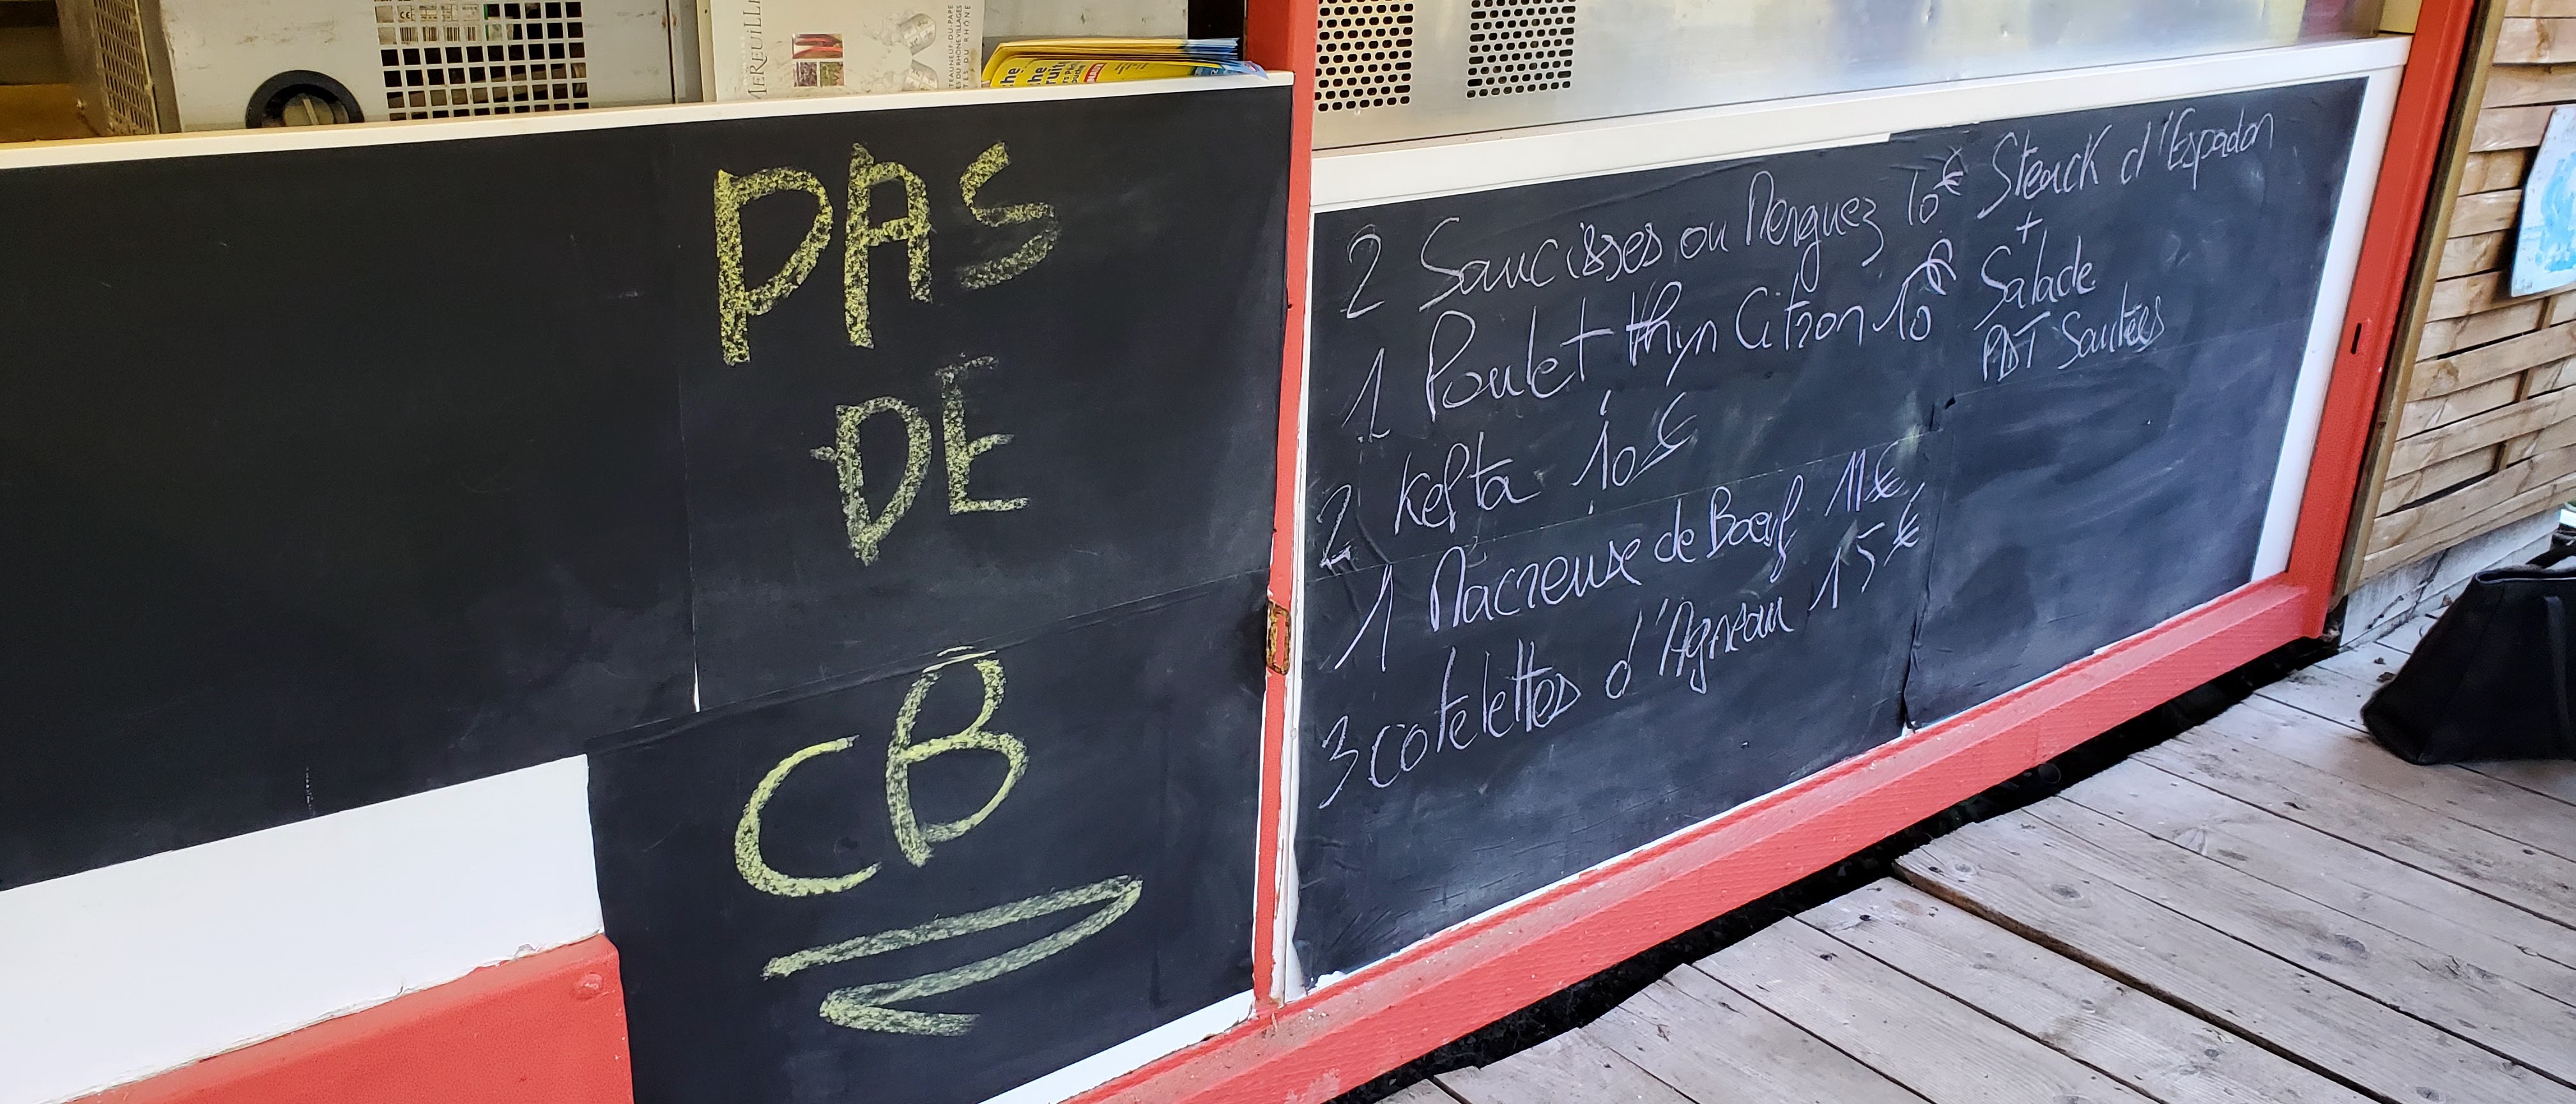 PAS
DE
CB
2 Saucisses ou Merguez 10€
1 Poulet thyn Citron 10€
2 Kefta 10€
1 Macreuse de Boeuf 11€
3 cotelettes d'Agneau 15€
Steack d'Espadon
+
Salade
PDT Sautées